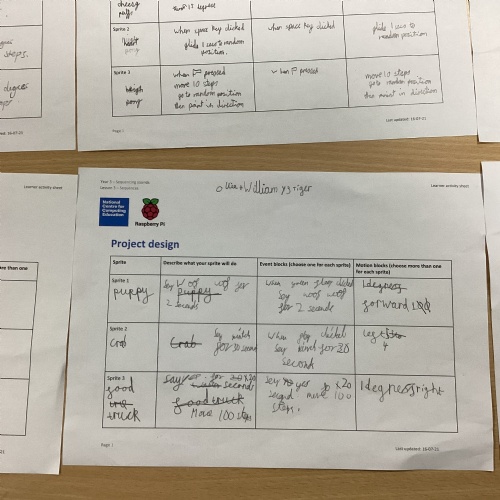 cheesy
puffs
turn 15 degrees
Sprite 2
pong
when space key clicked
glide 1 secs to random
position.
when space key clicked
glide 1 secs to
random position
Sprite 3
pong
when pressed
move 10 steps
go to random position
then point in direction
when pressed
move 10 steps
go to random position
then point in direction
steps.
Page 1
Last updated: 16-07-21
Last updated: 16-07-21
Learner activity sheet
Year 3 – Sequencing sounds
Lesson 3 – Sequences
Ollie + William y3 tiger
Learner activity sheet
National
Centre for
Computing
Education
Raspberry Pi
Project design
are than one
Sprite
Describe what your sprite will do
Event blocks (choose one for each sprite)
Motion blocks (choose more than one
for each sprite)
Sprite 1
puppy
Say woof woof for
puppy
2 seconds
when green flag clicked
Say woof woof
for 2 seconds
1 degress
forward 100
Sprite 2
Crab
Crab
Say
for 30 second
When flag clicked
Say for 30
second
4
Sprite 3
food
truck
seconds
food truck
Move 100 steps
Say yes x20
second move 100
steps.
1 degress right
Page 1
Last updated: 16-07-21
16-07-21